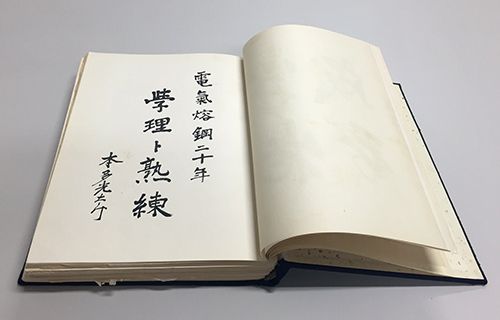 電氣熔鋼二十年
学理ト熟練
本多光太郎